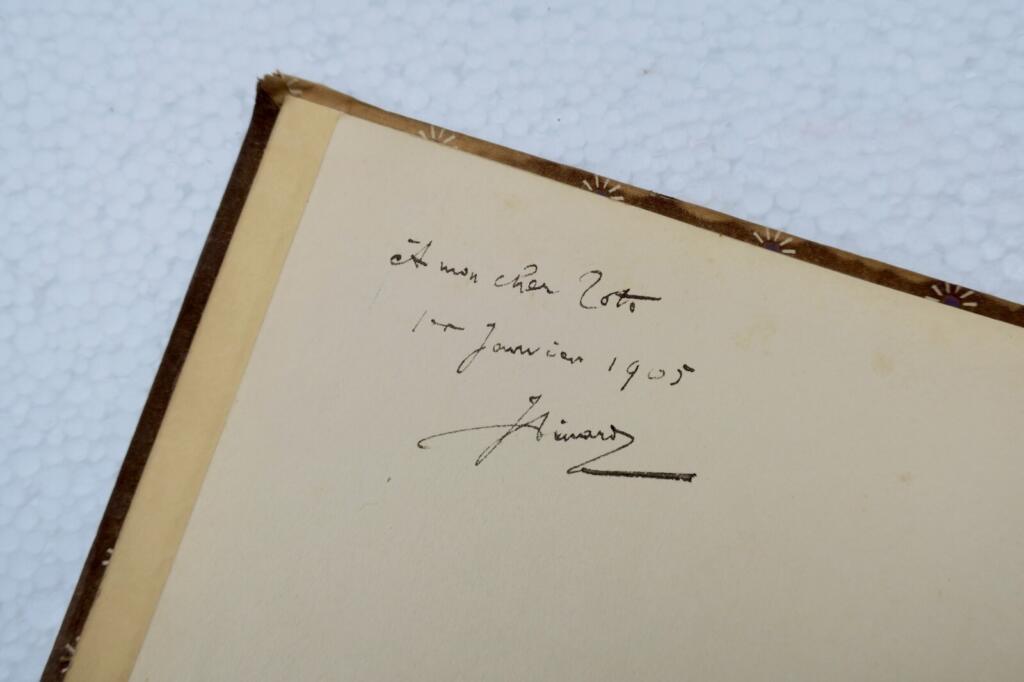 À mon cher Toto
1er Janvier 1905
JAimard